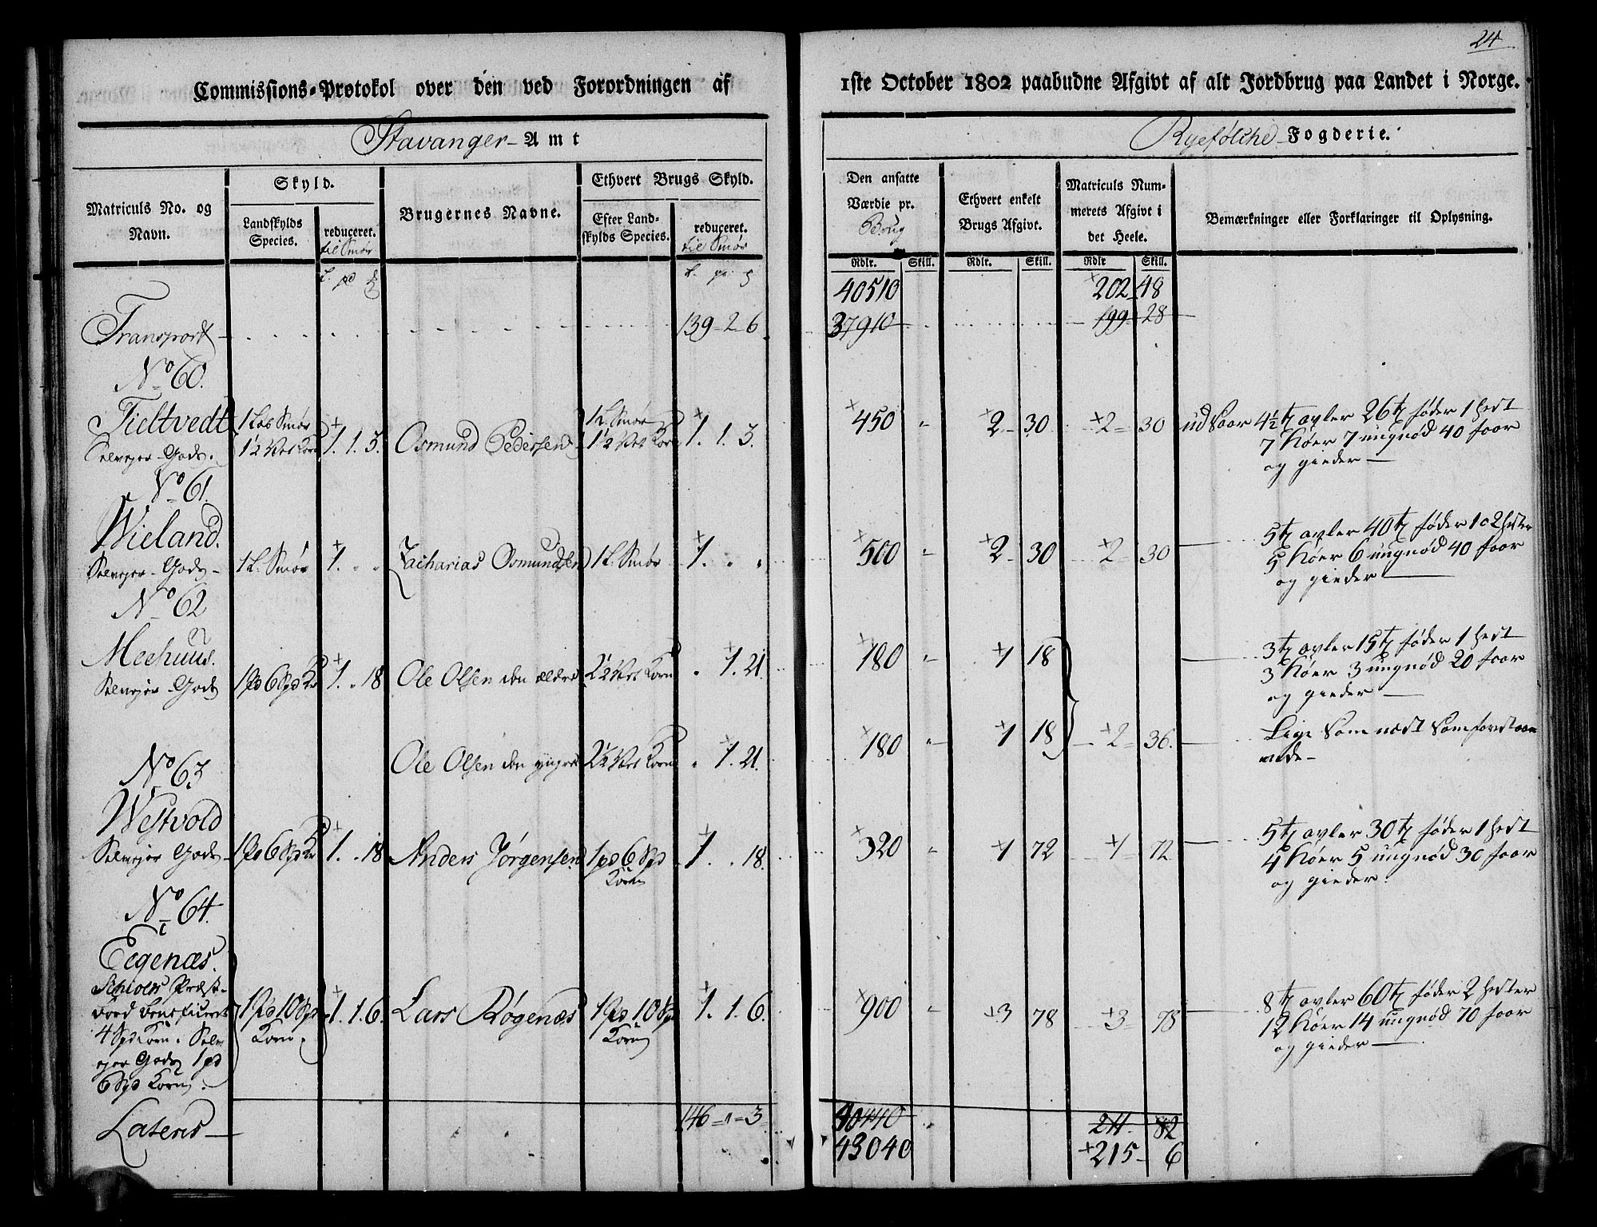 24
Commissions-Protokol over den ved Forordningen af 1ste October 1802 paabudne Afgivt af alt Jordbrug paa Landet i Norge.
Stavanger Amt
Ryefølche Fogderie.
Matriculs No. og Navn.
Skyld.
Landskylds Species.
reduceret. til Smør
Brugernes Navne.
Ethvert Brugs Skyld.
Efter Landskylds Species.
reduceret. til Smør
Den ansatte Værdie pr. Brug
Ethvert enkelt Brugs Afgivt.
Matriculs Nummerets Afgivt i det Heele.
Bemærkninger eller Forklaringer til Oplysning.
Rdlr. Skill. Rdlr. Skill. Rdlr Skill.
40510 202 48
Transport 139 - 2 - 6 37910 199 - 28
No 60.
Tieltvedt 1 Løs Smør 1. 1. 3. Osmund Pedersen 1 L. Smør 1. 1. 3. 450 " 2 - 30 2 - 30 udsaar 4½ t avler 26 t føder 1 Hest
Selvejer Gods. 1½ Korn 1½ Korn 7 Køer 7 ungnød 40 faar
og gieder
No 61.
Wieland. 5 t avler 40 t føder 1 o 2 hester
Selvejer Gods 1 L. Smør 1. " " Zacharias Osmundsen 1 L. Smør 1. " " 500 " 2 - 30 2 - 30 5 Køer 6 ungnød 40 faar
og gieder
No 62
Meehuus. 3 t avler 15 t føder 1 hest
Selvejer Gods 1 pd 6 Spd 1. " 18 Ole Olsen den ældre 2½ Korn " 1. 21. 180 " 1 18 3 Køer 3 ungnød 20 faar
og gieder
Ole Olsen den yngre 2½ Korn " 1. 21. 180 " 1 18 2 - 36. Lige som næst samforstaaende
No 63
Westvold 5 t avler 30 t føder 1 hest
Selvejer Gods 1 pd 6 Spd 1. " 18 Anders Jørgensen 1 pd 6 Spd Korn 1. " 18. 320 " 1 72 1 - 72 4 Køer 5 ungnød 30 faar
og gieder.
No 64.
Eegenæs.
Præst- 8 t avler 60 t føder 2 hester
1 pd 10 Spd Korn. 1. 1. 6. Lars Røgenæs 1 pd 10 Spd Korn 1. 1. 6. 900 3 78 3 78 12 Køer 14 ungnød 70 faar
4 Spd Korn. Selv- og gieder
ejer Gods 1 pd
6 Spd Korn.
Lateris 146 - " - 3 40440 211 82
43040 215 - 6